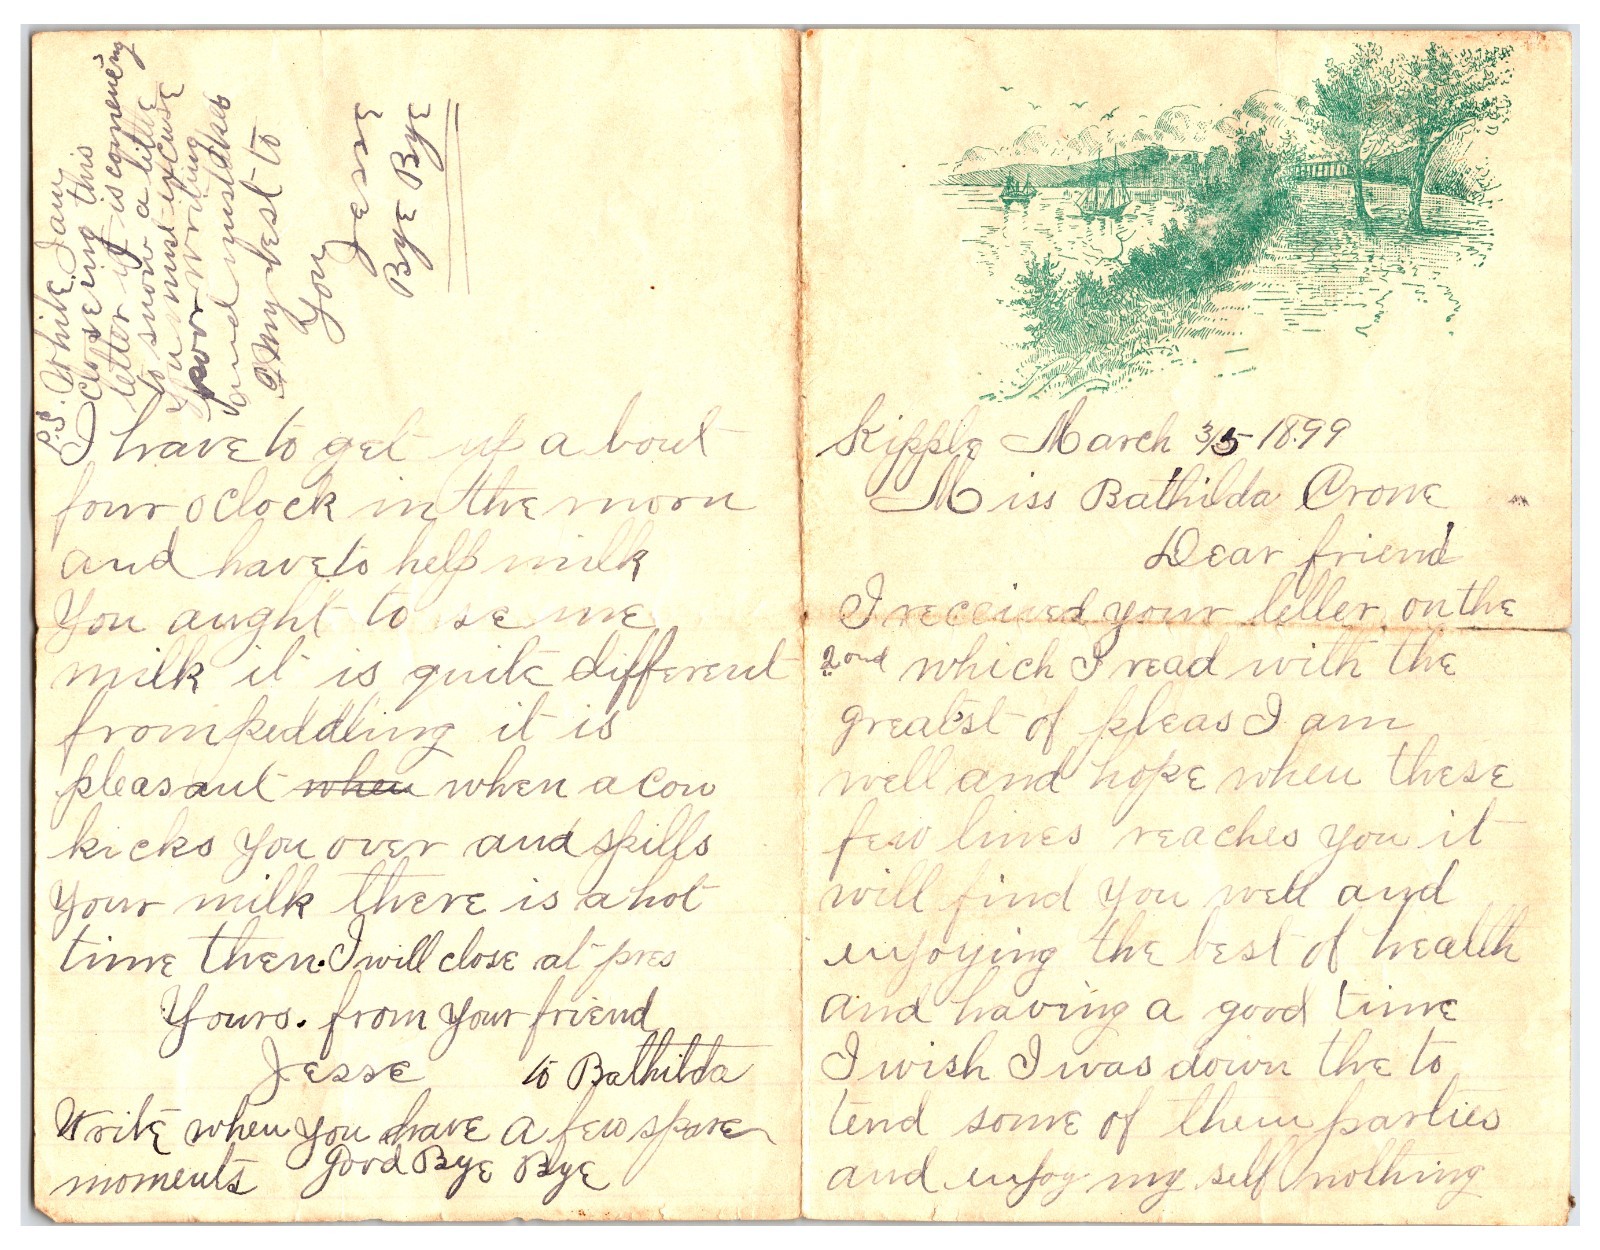 Kipple March 3/5 1899
Miss Bathilda Crone
Dear friend
I received your letter on the
2ond which I read with the
greatst of pleas I am
well and hope when these
few lines reaches you it
will find you well and
enjoying the best of health
and having a good time
I wish I was down the to
tend some of them parties
and enjoy my self nothing
I have to get up a bout
four oclock in the morn
and have to help milk
You aught to se me
milk it is quite different
from peddling it is
pleasant when when a cow
kicks you over and spills
your milk there is a hot
time then. I will close at pres
Yours. from your friend
Jesse to Bathilda
Write when you have a few spare
moments good Bye Bye
P.S. While I am
closeing this
letter it is comeing
to snow a little
You must excuse
poor writing
and mistakes
My best to
You
Jesse
Bye Bye